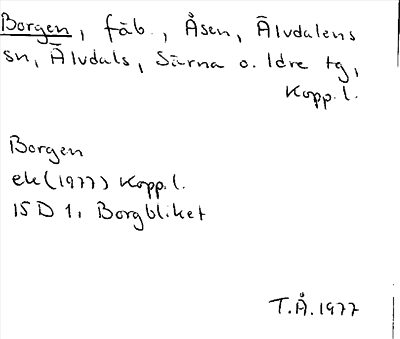 Borgen, fäb., Åsen, Älvdalens
sn, Älvdals, Särna o. Idre tg,
Kopp. l.
Borgen
ek (1977) Kopp. l.
15 D 1, Borgbliket
T.Å. 1977